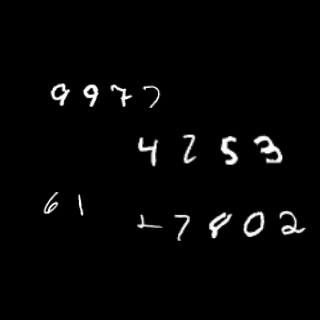 9977
4253
61
7802